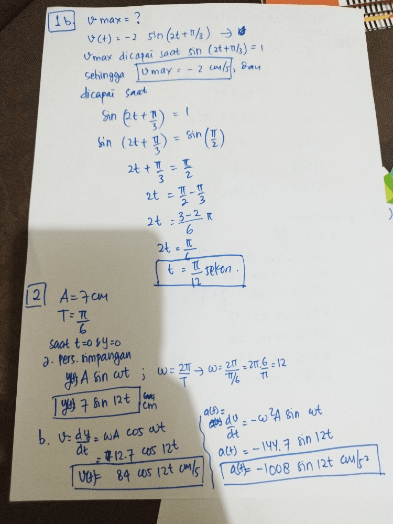 1b. v max = ?
v(t) = -2 sin (2t + π/3) →
v max dicapai saat sin (2t+π/3) = 1
sehingga v max = -2 cm/s, dan
dicapai saat
sin (2t + π/3) = 1
sin (2t + π/3) = sin (π/2)
2t + π/3 = π/2
2t = π/2 - π/3
2t = 3-2/6 π
2t = π/6
t = π/12 sekon.
2 A = 7 cm
T = π/6
saat t=0 y=0
a. Pers. simpangan
A sin ωt ; ω = 2π/T → ω = 2π/π/6 = 2π.6/π = 12
7 sin 12t cm
b. v = dy/dt = ωA cos ωt
= 12.7 cos 12t
v(t) = 84 cos 12t cm/s
a(t) =
dv/dt = -ω²A sin ωt
a(t) = -144.7 sin 12t
a(t) = -1008 sin 12t cm/s²